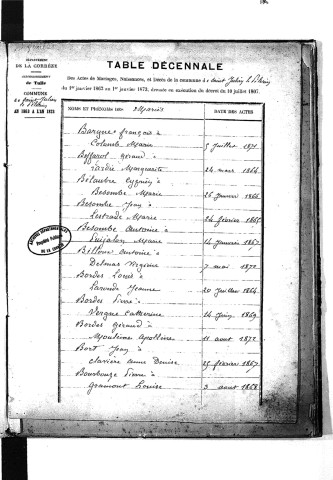 DÉPARTEMENT
DE LA CORRÈZE
ARRONDISSEMENT
de Tulle
COMMUNE
de Saint Julien
le Pèlerin
DE 1863 A L'AN 1873
TABLE DÉCENNALE
Des Actes de Mariages, Naissances, et Décès de la commune de Saint Julien le Pèlerin
du 1er janvier 1863 au 1er janvier 1873, dressée en exécution du décret du 20 juillet 1807.
NOMS ET PRÉNOMS DES Mariés DATE DES ACTES
Bargues françois à
Colombe Marie 5 juillet 1871
Beffarol Géraud à
Lardie Marguerite 24 mars 1864
Belaubre Eugénie à
Besombe Marie 25 janvier 1866
Besombe Jean à
Lestrade Marie 24 février 1865
Besombe Antoine à
Puijalon Marie 14 janvier 1867
Billoux Antoine à
Delmas Virginie 7 mai 1872
Bordes Louis à
Laronde Jeanne 20 juillet 1864
Bordes Pierre à
Vergne Catherine 14 juin 1869
Bordes Géraud à
Moulène Apolline 11 août 1872
Bort Jean à
Clavière Anne Denise 25 février 1867
Bourbouze Pierre à
Gramont Louise 3 août 1868